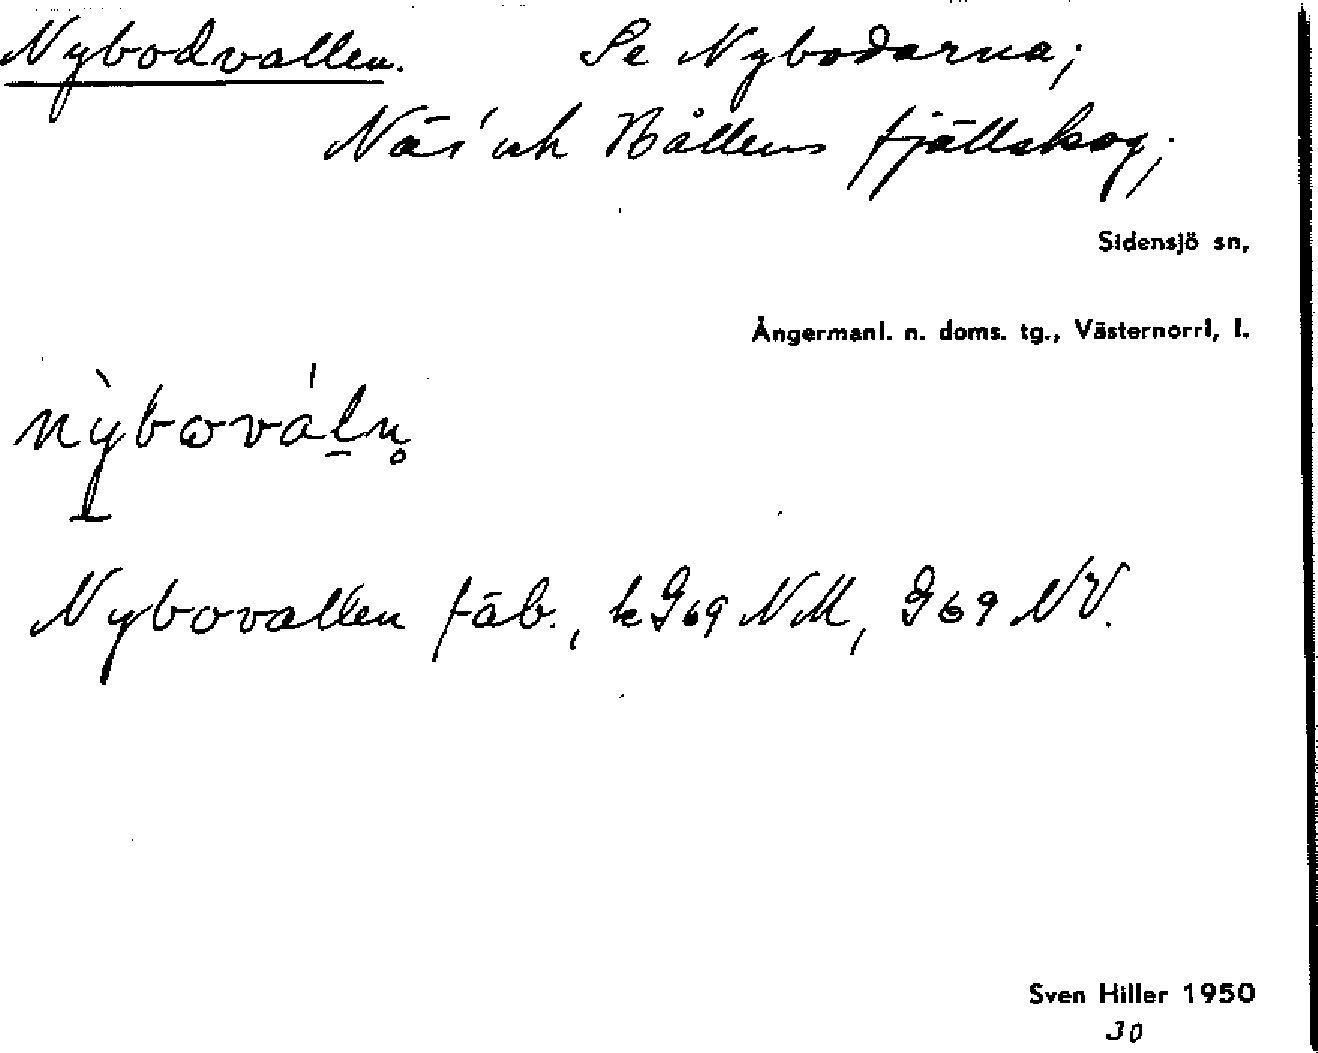 Nybodvallen. Se Nybodarna;
Näs' och Bållens fjällskog;
Sidensjö sn,
Ångermanl. n. doms. tg., Västernorrl, l.
Nybovallen fäb., k G69 NM, G69 NV.
Sven Hiller 1950
JO